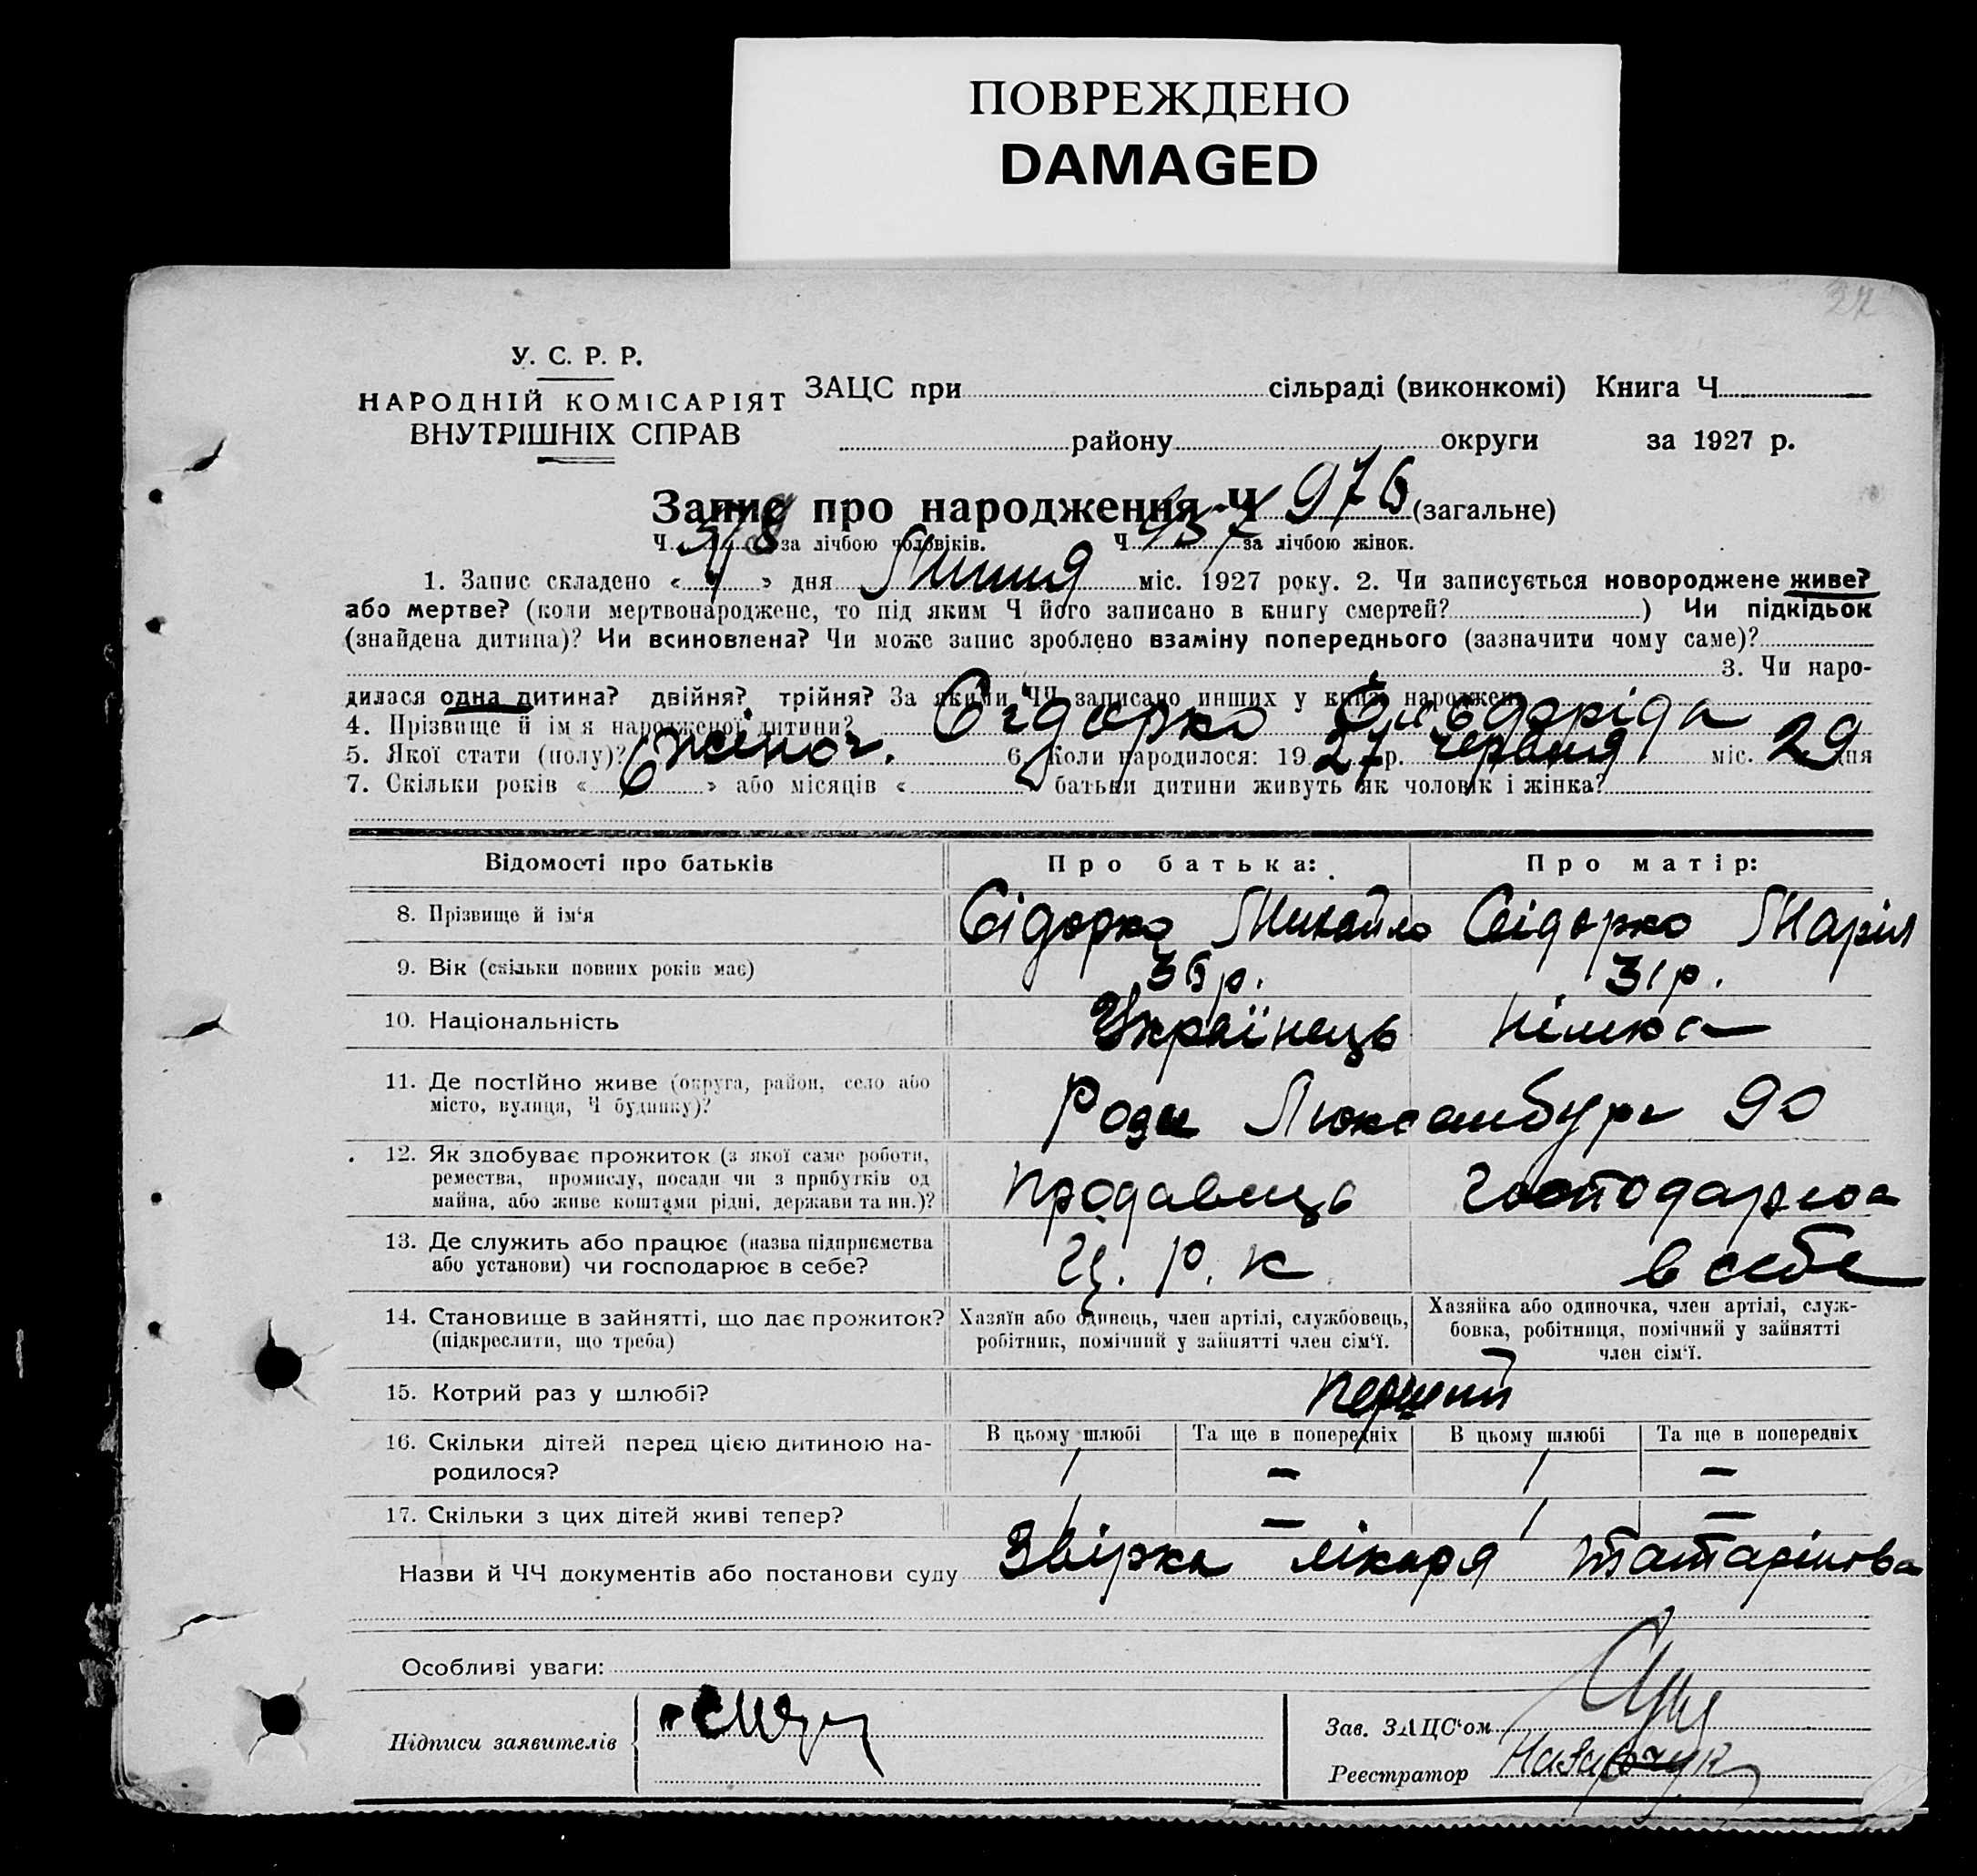 ПОВРЕЖДЕНО
DAMAGED
У. С. Р. Р.
НАРОДНІЙ КОМІСАРІЯТ
ВНУТРІШНІХ СПРАВ
ЗАЦС при сільраді (виконкомі) Книга Ч
району округи за 1927 р.
Запис про народження Ч 976 (загальне)
Ч. за лічбою чоловіків. Ч 457 за лічбою жінок.
1. Запис складено « » дня Липня міс. 1927 року. 2. Чи записується новороджене живе?
або мертве? (коли мертвонароджене, то під яким Ч його записано в книгу смертей? ) Чи підкідьок
(знайдена дитина)? Чи всиновлена? Чи може запис зроблено взаміну попереднього (зазначити чому саме)?
3. Чи наро-
дилася одна дитина? двійня? трійня? За якими ЧЧ записано инших у книзі народжень
4. Прізвище й ім я народженої дитини? Сідорко
5. Якої стати (полу)? жіноч. 6. Коли народилося: 1927 р. червня міс. 29 дня
7. Скільки років « 6 » або місяців « » батьки дитини живуть як чоловік і жінка?
Відомості про батьків Про батька: Про матір:
8. Прізвище й ім‘я Сідорко Михайло Сідорко Марія
9. Вік (скільки повних років має) 36 р. 31 р.
10. Національність Українець Німкеса
11. Де постійно живе (округа, район, село або
місто, вулиця, Ч будинку)? Рози Люксембург 90
12. Як здобуває прожиток (з якої саме роботи,
ремества, промислу, посади чи з прибутків од
майна, або живе коштами рідні, держави та ин.)? продавець господарка
13. Де служить або працює (назва підприємства
або установи) чи господарює в себе? Ц. Р. К в себе
14. Становище в зайнятті, що дає прожиток?
(підкреслити, що треба)
Хазяїн або одинець, член артілі, службовець,
робітник, помічний у зайнятті член сім‘ї.
Хазяйка або одиночка, член артілі, служ-
бовка, робітниця, помічний у зайнятті
член сім‘ї.
15. Котрий раз у шлюбі? перший
16. Скільки дітей перед цією дитиною на-
родилося?
В цьому шлюбі Та ще в попередніх В цьому шлюбі Та ще в попередніх
1 — 1 —
17. Скільки з цих дітей живі тепер? 1 — 1 —
Назви й ЧЧ документів або постанови суду Звірка лікаря Татарінова
Особливі уваги:
Підписи заявителів
Зав. ЗАЦС‘ом
Реєстратор